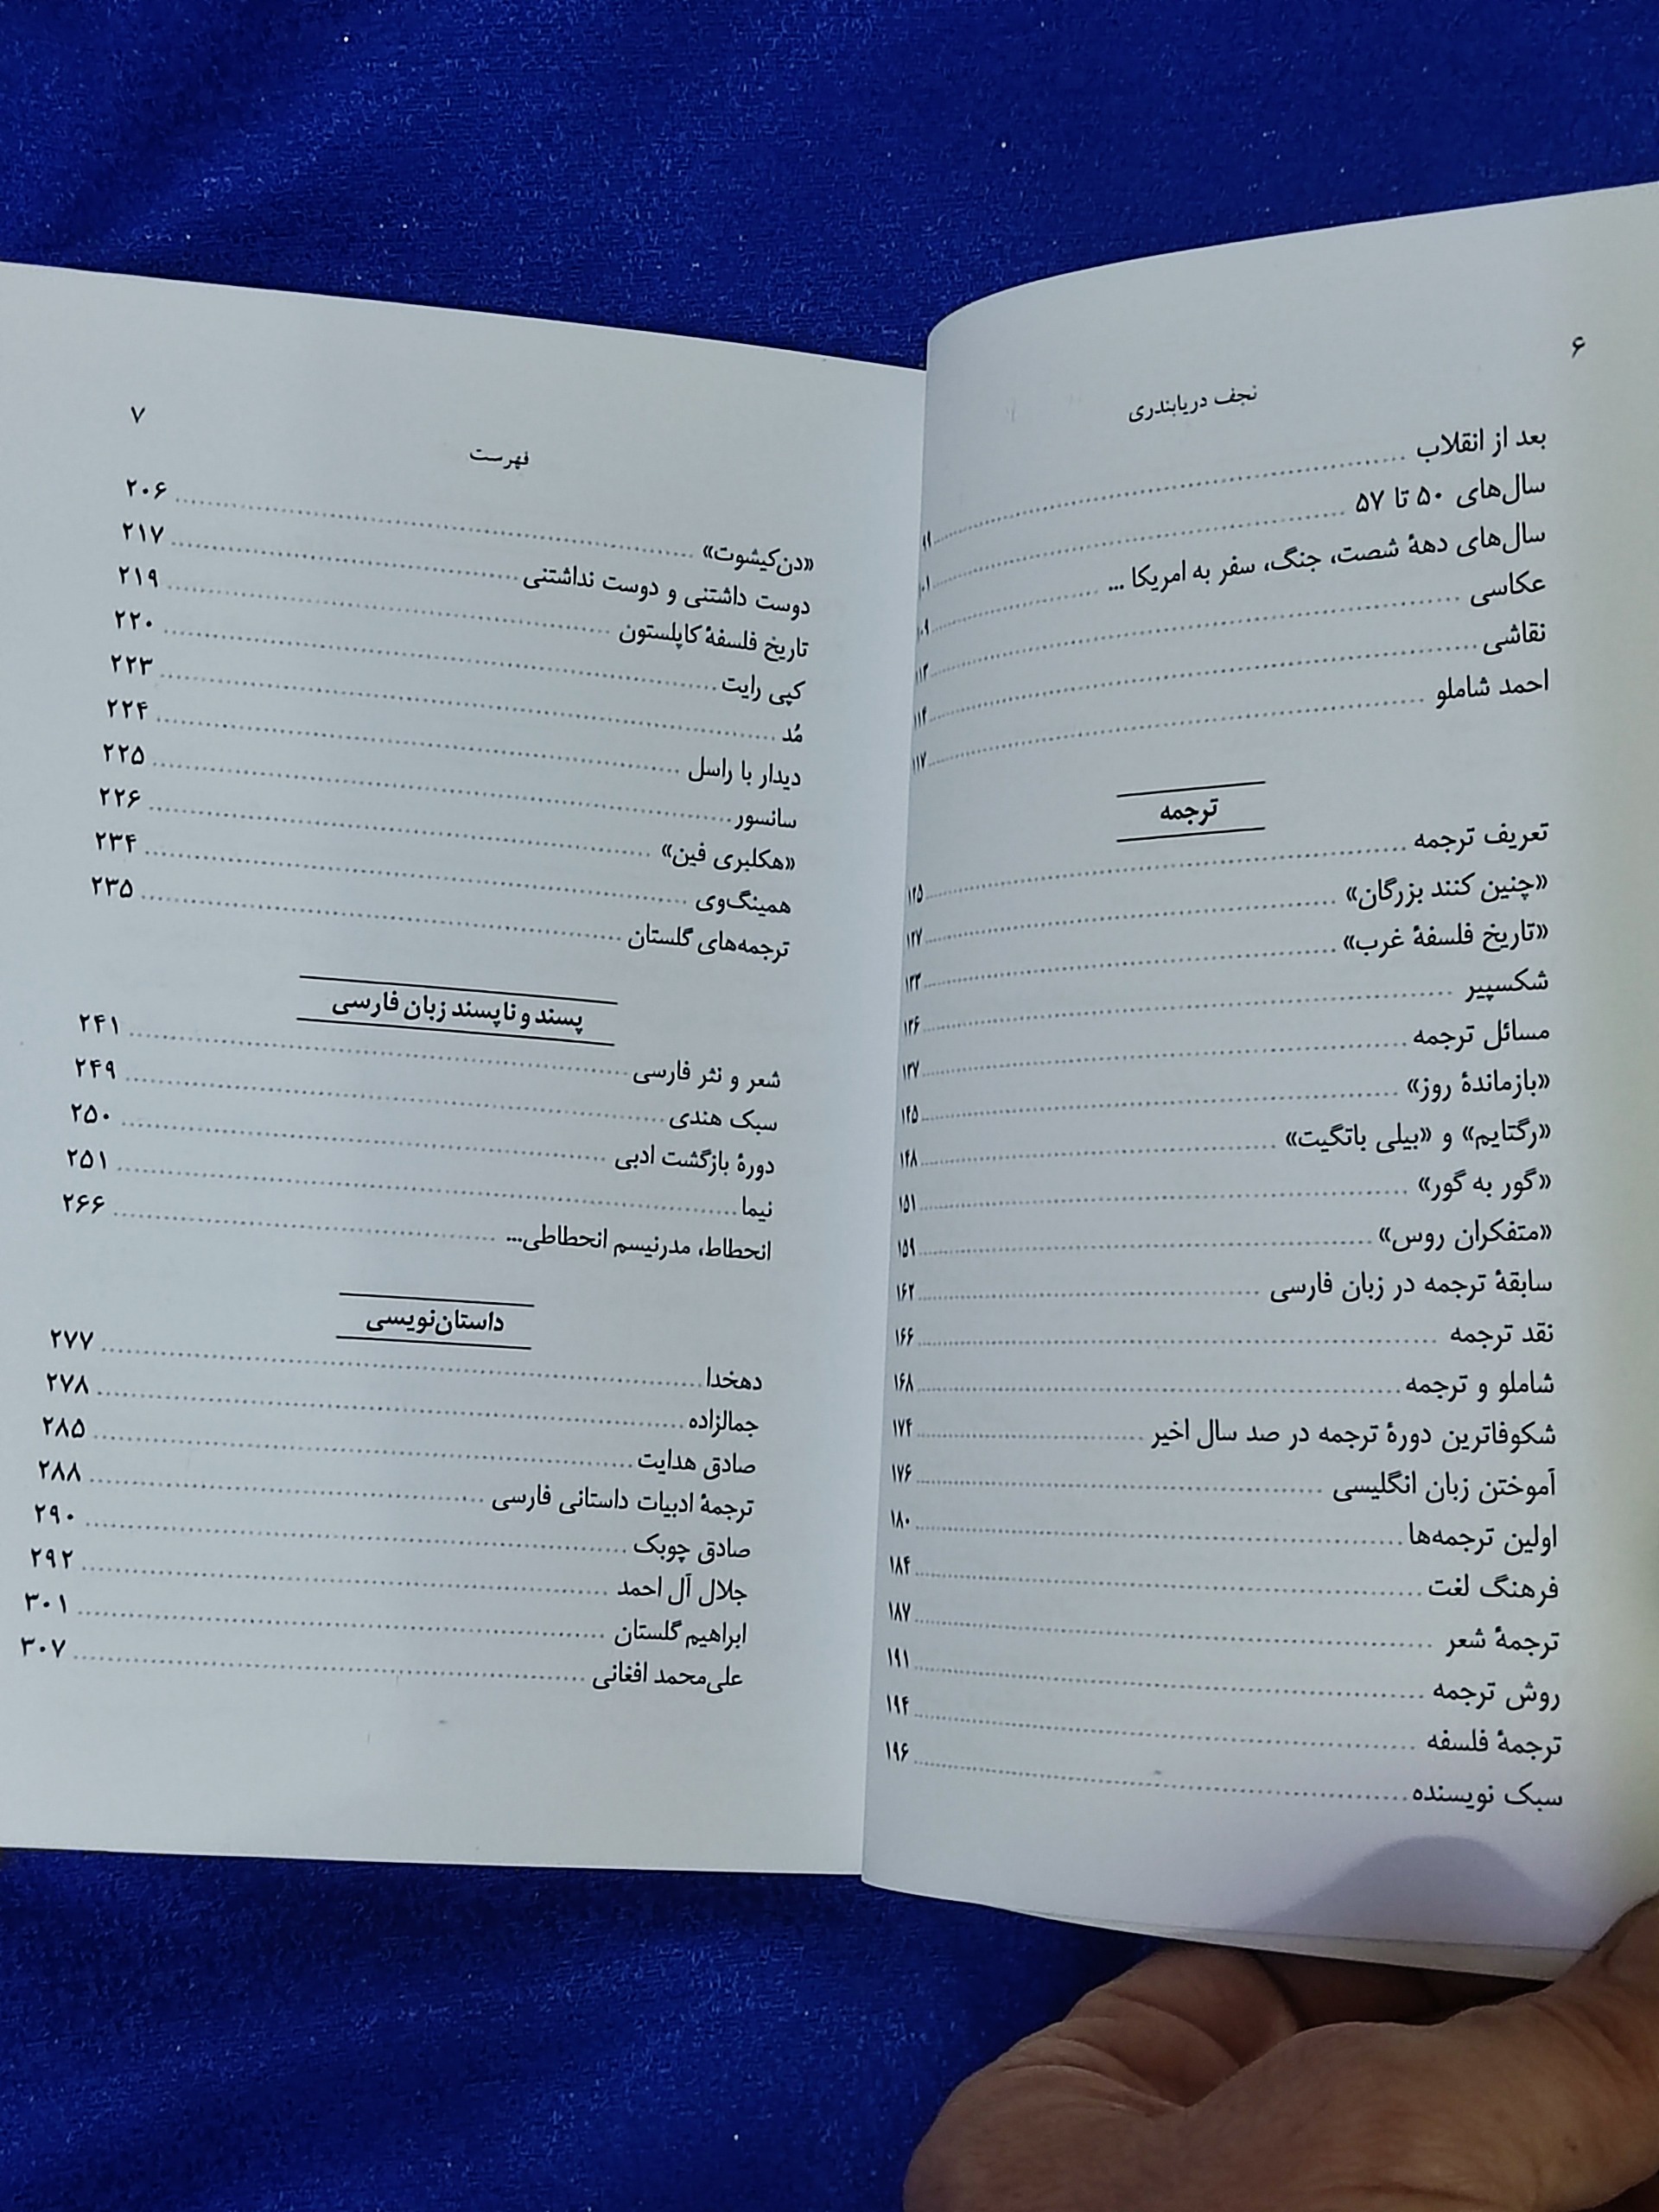 ۶
نجف دریابندری
بعد از انقلاب ........ ۹۹
سال‌های ۵۰ تا ۵۷ ........
سال‌های دههٔ شصت، جنگ، سفر به امریکا ... ........ ۱۰۹
عکاسی ........ ۱۱۳
نقاشی ........ ۱۱۴
احمد شاملو ........ ۱۱۷
ترجمه
تعریف ترجمه ........ ۱۲۵
«چنین کنند بزرگان» ........ ۱۲۷
«تاریخ فلسفهٔ غرب» ........
شکسپیر ........ ۱۳۶
مسائل ترجمه ........ ۱۳۷
«بازماندهٔ روز» ........ ۱۴۵
«رگتایم» و «بیلی باتگیت» ........ ۱۴۸
«گور به گور» ........ ۱۵۱
«متفکران روس» ........ ۱۵۹
سابقهٔ ترجمه در زبان فارسی ........ ۱۶۲
نقد ترجمه ........ ۱۶۶
شاملو و ترجمه ........ ۱۶۸
شکوفاترین دورهٔ ترجمه در صد سال اخیر ........ ۱۷۴
آموختن زبان انگلیسی ........ ۱۷۶
اولین ترجمه‌ها ........ ۱۸۰
فرهنگ لغت ........ ۱۸۴
ترجمهٔ شعر ........ ۱۸۷
روش ترجمه ........ ۱۹۱
ترجمهٔ فلسفه ........ ۱۹۴
سبک نویسنده ........ ۱۹۶
۷
فهرست
«دن‌کیشوت» ........ ۲۰۶
دوست داشتنی و دوست نداشتنی ........ ۲۱۷
تاریخ فلسفهٔ کاپلستون ........ ۲۱۹
کپی رایت ........ ۲۲۰
مُد ........ ۲۲۳
دیدار با راسل ........ ۲۲۴
سانسور ........ ۲۲۵
«هکلبری فین» ........ ۲۲۶
همینگ‌وی ........ ۲۳۴
ترجمه‌های گلستان ........ ۲۳۵
پسند و ناپسند زبان فارسی
شعر و نثر فارسی ........ ۲۴۱
سبک هندی ........ ۲۴۹
دورهٔ بازگشت ادبی ........ ۲۵۰
نیما ........ ۲۵۱
انحطاط، مدرنیسم انحطاطی... ........ ۲۶۶
داستان‌نویسی
دهخدا ........ ۲۷۷
جمالزاده ........ ۲۷۸
صادق هدایت ........ ۲۸۵
ترجمهٔ ادبیات داستانی فارسی ........ ۲۸۸
صادق چوبک ........ ۲۹۰
جلال آل احمد ........ ۲۹۲
ابراهیم گلستان ........ ۳۰۱
علی‌محمد افغانی ........ ۳۰۷